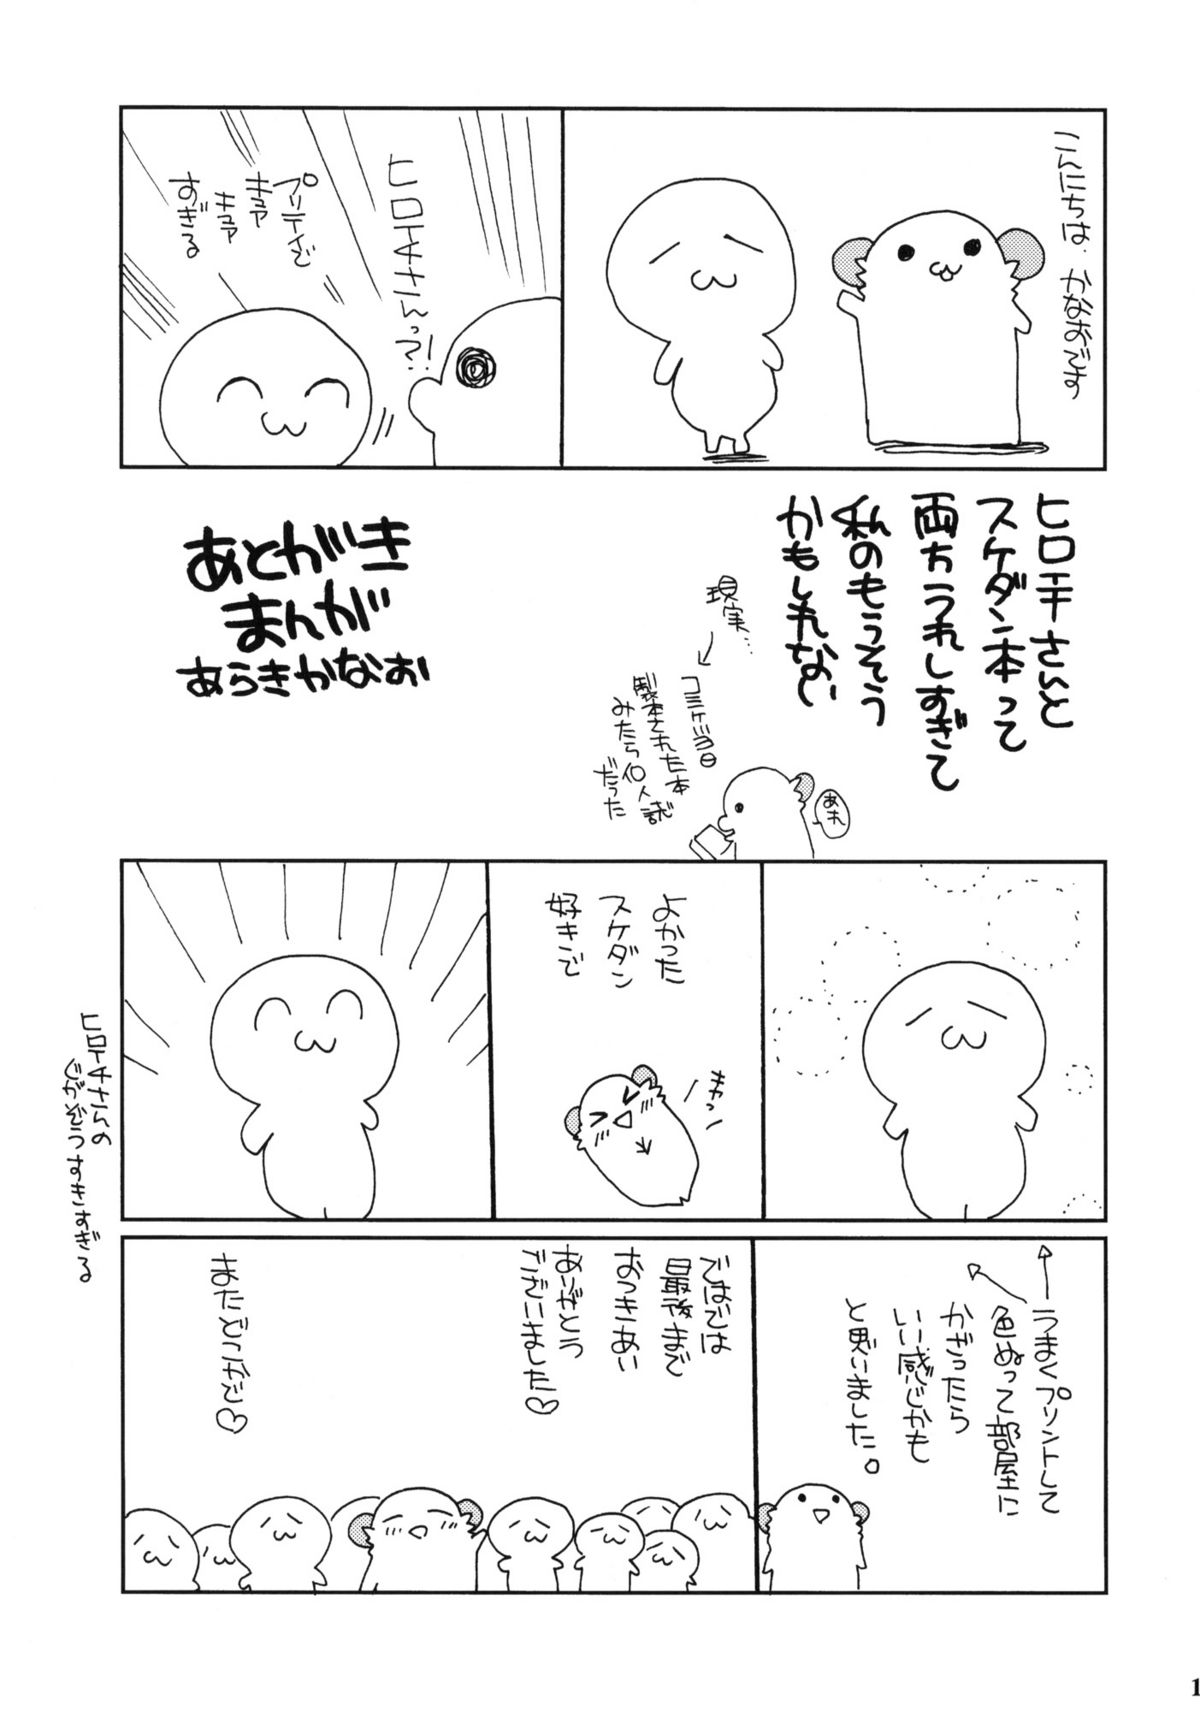 こんにちは かなおです
ヒロチさんっ?!
プリティで
キュア
キュア
すぎる
ヒロチさんと
スケダン本って
両方うれしすぎて
私のもうそう
かもしれない
現実…
コミケ当日
製本された本
みたら個人誌
だった
あれ
あとがき
まんが
あらきかなお
よかった
スケダン
好きで
キャッ
ヒロチさんの
じがぞうすきすぎる
うまくプリントして
色ぬって部屋に
かざったら
いい感じかも
と思いました。
ではでは
最後まで
おつきあい
ありがとう
ございました♡
またどこかで♡
1